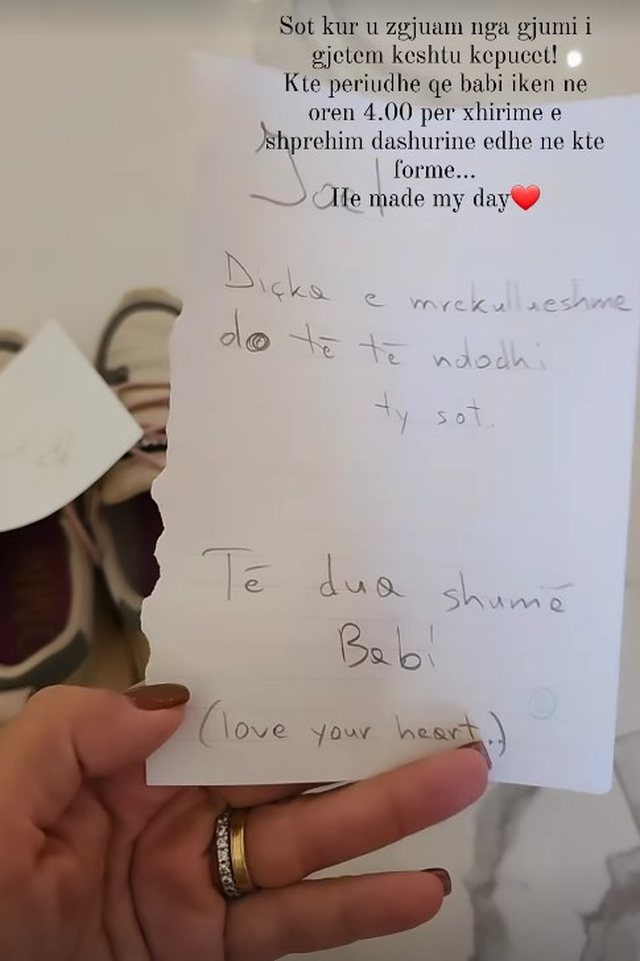 Sot kur u zgjuam nga gjumi i
gjetem keshtu kepucet!
Kte periudhe qe babi iken ne
oren 4.00 per xhirime e
shprehim dashurine edhe ne kte
forme...
He made my day❤️
Joel
Diçka e mrekullueshme
do të të ndodhi
ty sot.
Të dua shumë
Babi
(love your heart..)